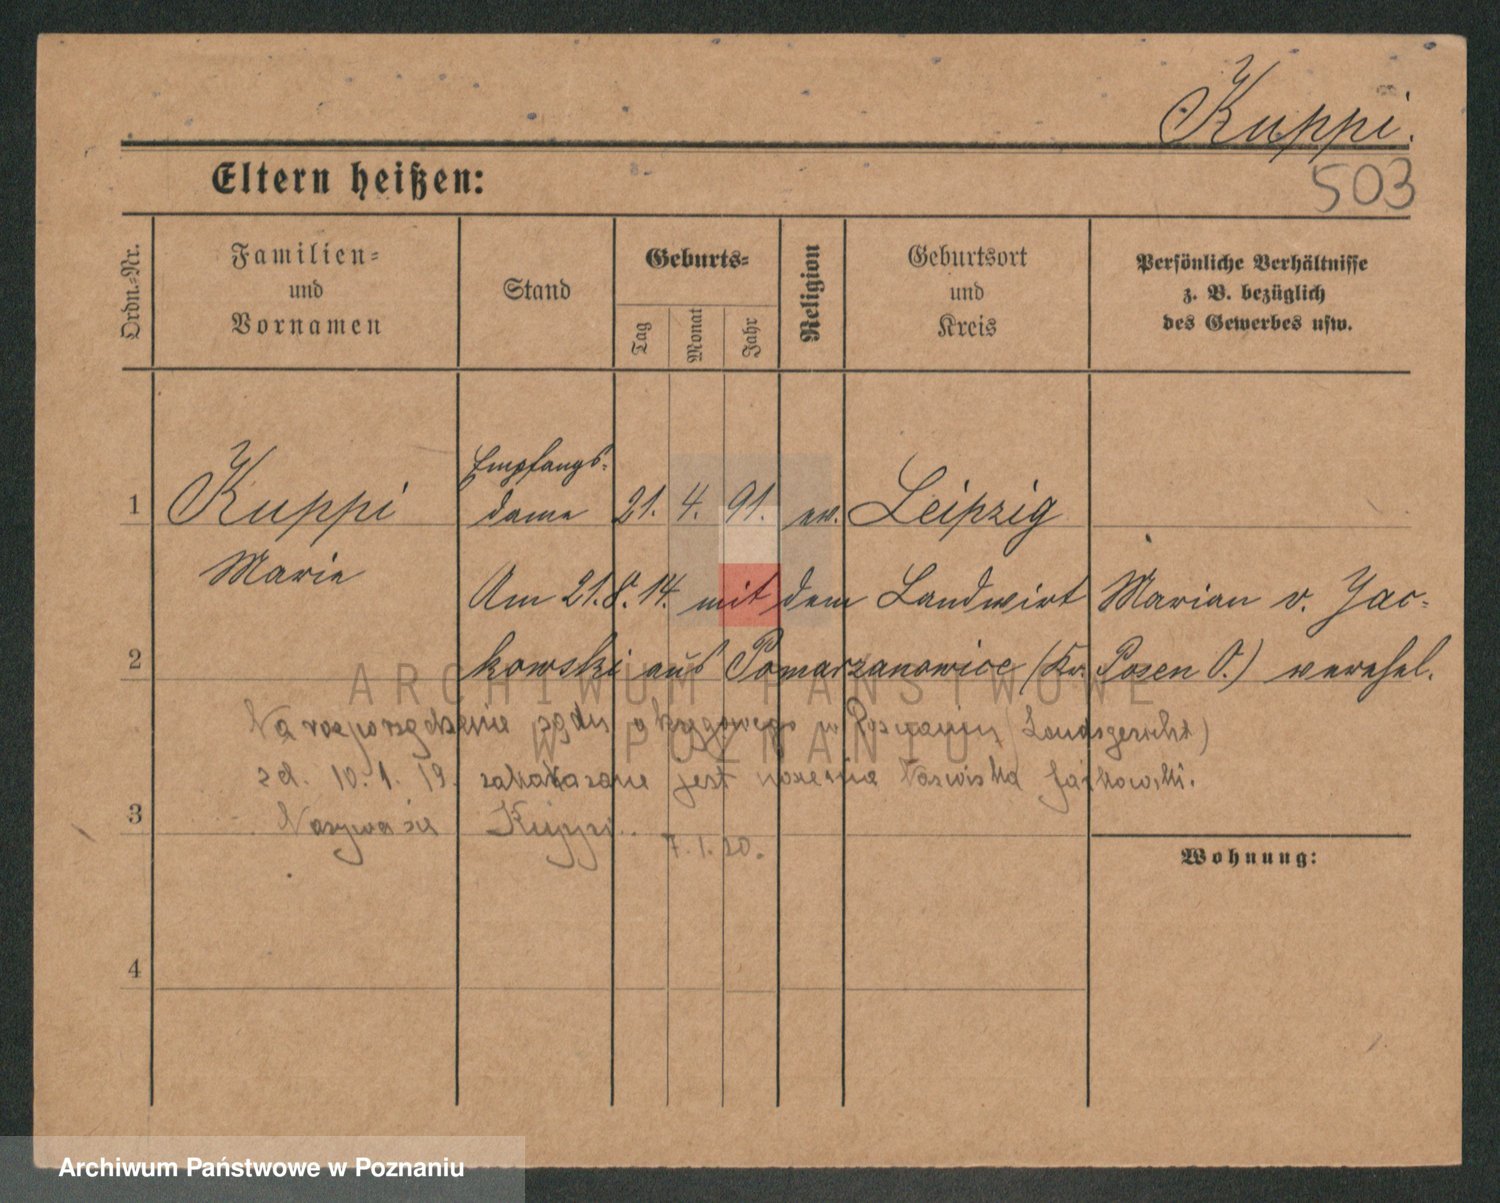 Kuppi.
503
Eltern heißen:
Ordn.-Nr.
Familien-
und
Vornamen
Stand
Geburts-
Tag
Monat
Jahr
Religion
Geburtsort
und
Kreis
Persönliche Verhältnisse
z. B. bezüglich
des Gewerbes usw.
1 Kuppi Empfangs-
dame 21. 4. 91. ev. Leipzig
Marie
Am 21.8.14. mit dem Landwirt Marian v. Jac-
2 kowski aus Pomarzanowice (Kr. Posen O.) verehel.
Na rozporządzenie sądu okręgowego w Poznaniu (Landsgericht)
zd. 10.1.19. zakazane jest noszenie Nazwiska Jackowski.
3 Nazywa się Kuppi.
7.1.20.
Wohnung:
4
ARCHIWUM PAŃSTWOWE
W POZNANIU
Archiwum Państwowe w Poznaniu